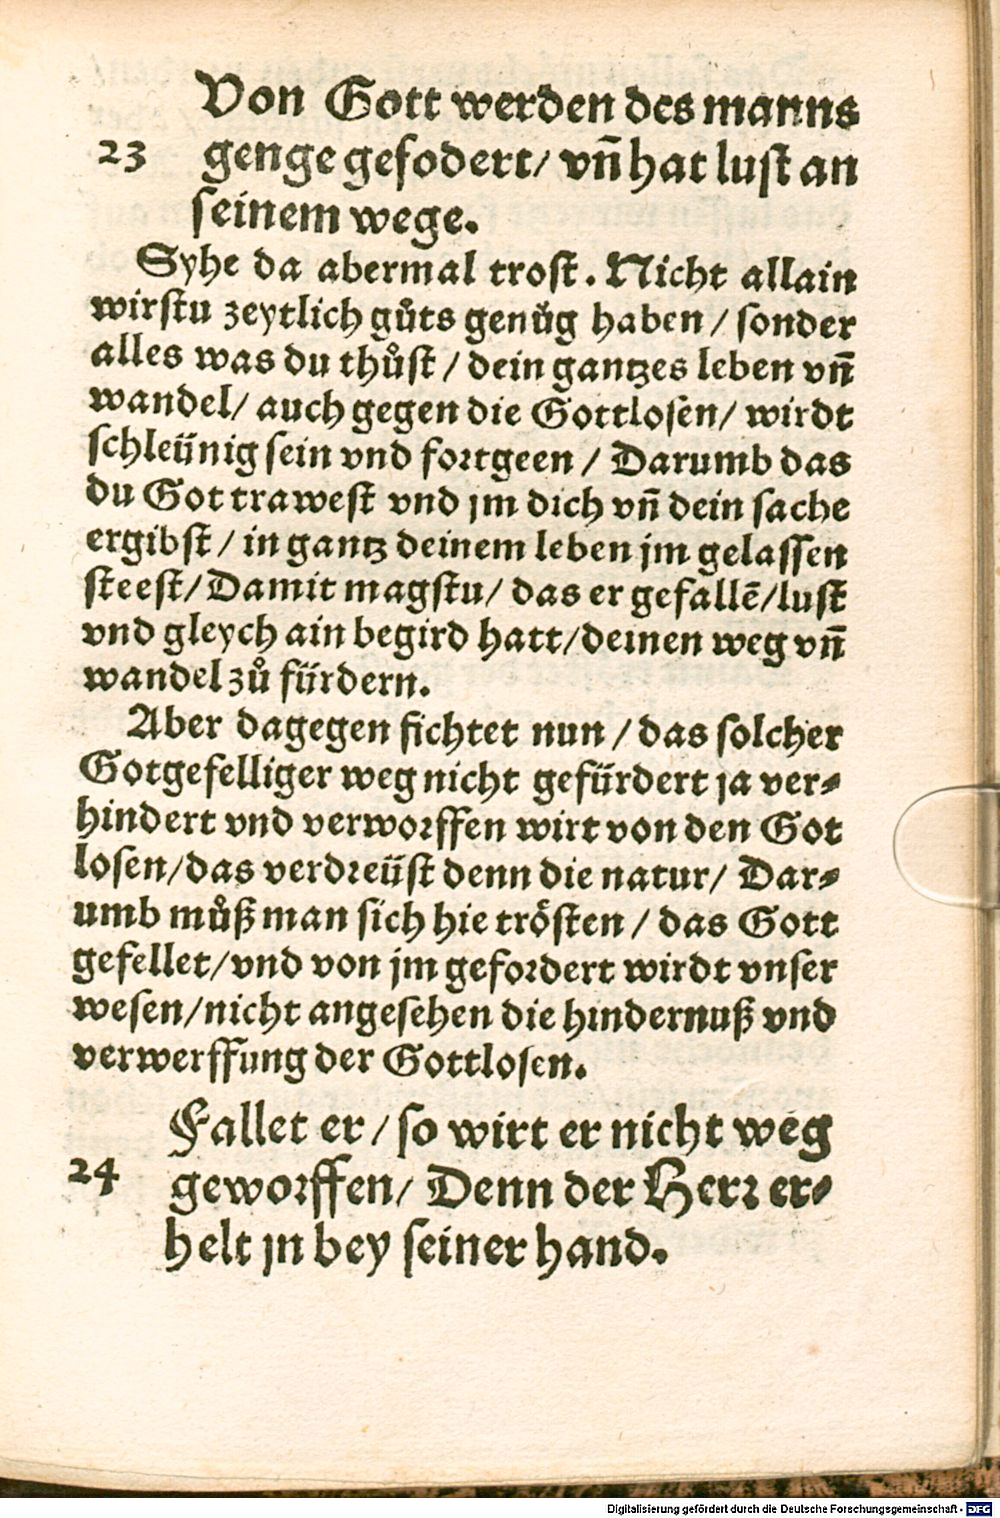 Von Gott werden des manns
23 genge gefodert/ vn̄ hat lust an
seinem wege.
Syhe da abermal trost. Nicht allain
wirstu zeytlich gůts genůg haben / sonder
alles was du thůst / dein gantzes leben vn̄
wandel/ auch gegen die Gottlosen/ wirdt
schleünig sein vnd fortgeen / Darumb das
du Got trawest vnd jm dich vn̄ dein sache
ergibst / in gantz deinem leben jm gelassen
steest/ Damit magstu/ das er gefallē/lust
vnd gleych ain begird hatt/deinen weg vn̄
wandel zů fürdern.
Aber dagegen fichtet nun / das solcher
Gotgefelliger weg nicht gefürdert ja ver-
hindert vnd verworffen wirt von den Got
losen/das verdreüst denn die natur/ Dar-
umb můß man sich hie trösten / das Gott
gefellet/vnd von jm gefordert wirdt vnser
wesen/nicht angesehen die hindernuß vnd
verwerffung der Gottlosen.
Fallet er / so wirt er nicht weg
24 geworffen/ Denn der Herr er-
helt jn bey seiner hand.
Digitalisierung gefördert durch die Deutsche Forschungsgemeinschaft - DFG